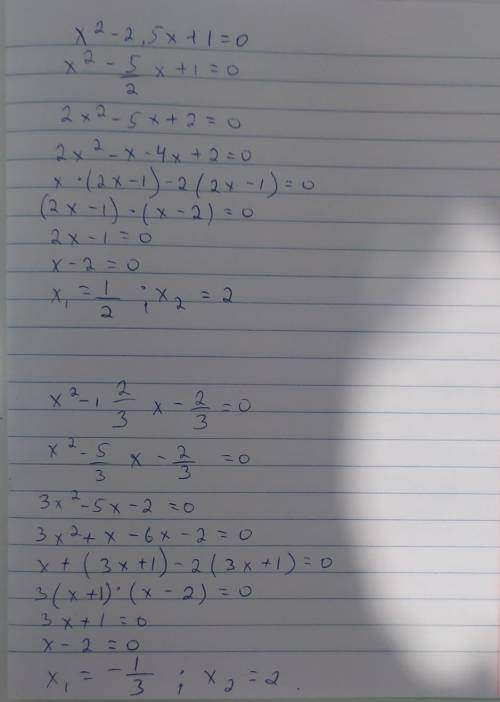 x² - 2,5x + 1 = 0
x² - 5/2 x + 1 = 0
2x² - 5x + 2 = 0
2x² - x - 4x + 2 = 0
x · (2x - 1) - 2 (2x - 1) = 0
(2x - 1) · (x - 2) = 0
2x - 1 = 0
x - 2 = 0
x₁ = 1/2 ; x₂ = 2
x² - 1 2/3 x - 2/3 = 0
x² - 5/3 x - 2/3 = 0
3x² - 5x - 2 = 0
3x² + x - 6x - 2 = 0
x + (3x + 1) - 2 (3x + 1) = 0
3(x + 1) · (x - 2) = 0
3x + 1 = 0
x - 2 = 0
x₁ = - 1/3 ; x₂ = 2.